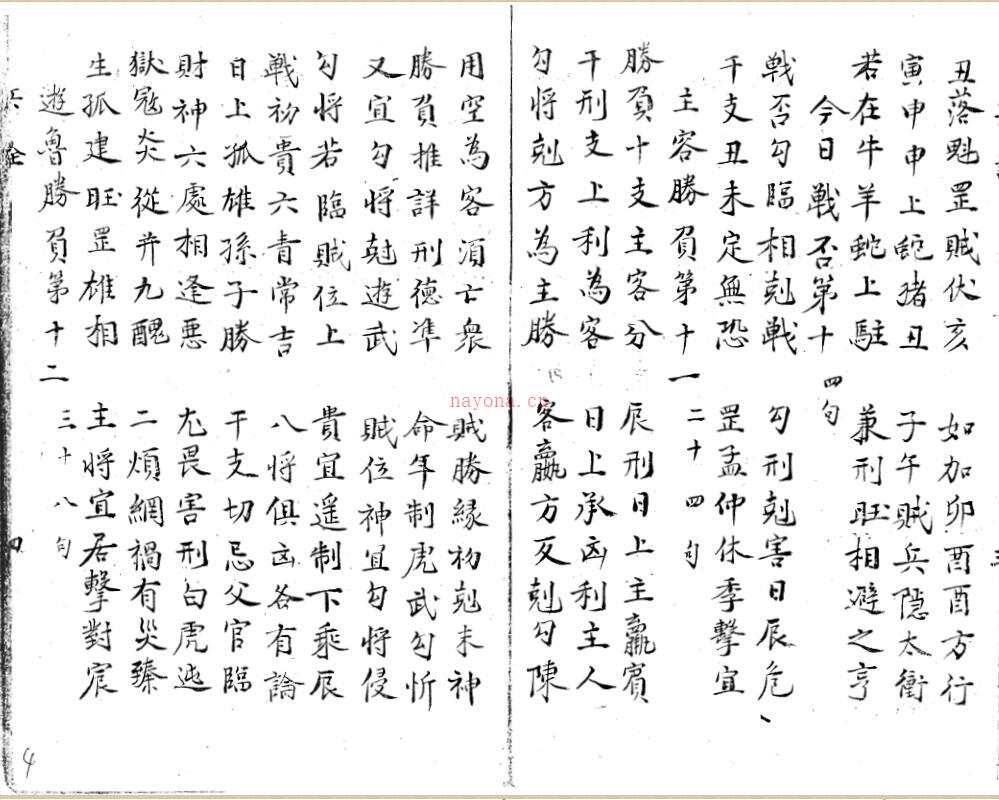 丑落魁罡賊伏亥 如加卯酉酉方行
寅申申上蛇猪丑 子午賊兵隱太衝
若在牛羊蛇上駐 兼刑旺相避之亨
今日戰否第十 四句
戰否勾臨相剋戰 勾刑剋害日辰危
干支丑未定無恐 罡孟仲休季擊宜
主客勝負第十一 二十四句
勝負十支主客分 辰刑日上主贏賓
干刑支上利為客 日上承凶利主人
勾将剋方為主勝 客贏方反剋勾陳
用空為客須亡衆 賊勝緣初剋末神
勝負推詳刑德準 命年制虎武勾忻
又宜勾将尅遊武 賊位神宜勾将侵
勾将若臨賊位上 貴宜遥制下乘辰
戰初貴六青常吉 八将俱凶各有論
日上孤雄孫子勝 干支切忌父官臨
財神六處相逢惡 尤畏害刑白虎迍
獄冠炎從并九醜 二煩網禍有災臻
生孤建旺罡雄相 主将宜居擊對宸
遊魯勝負第十二 三十八句
四
4
nayona.cn